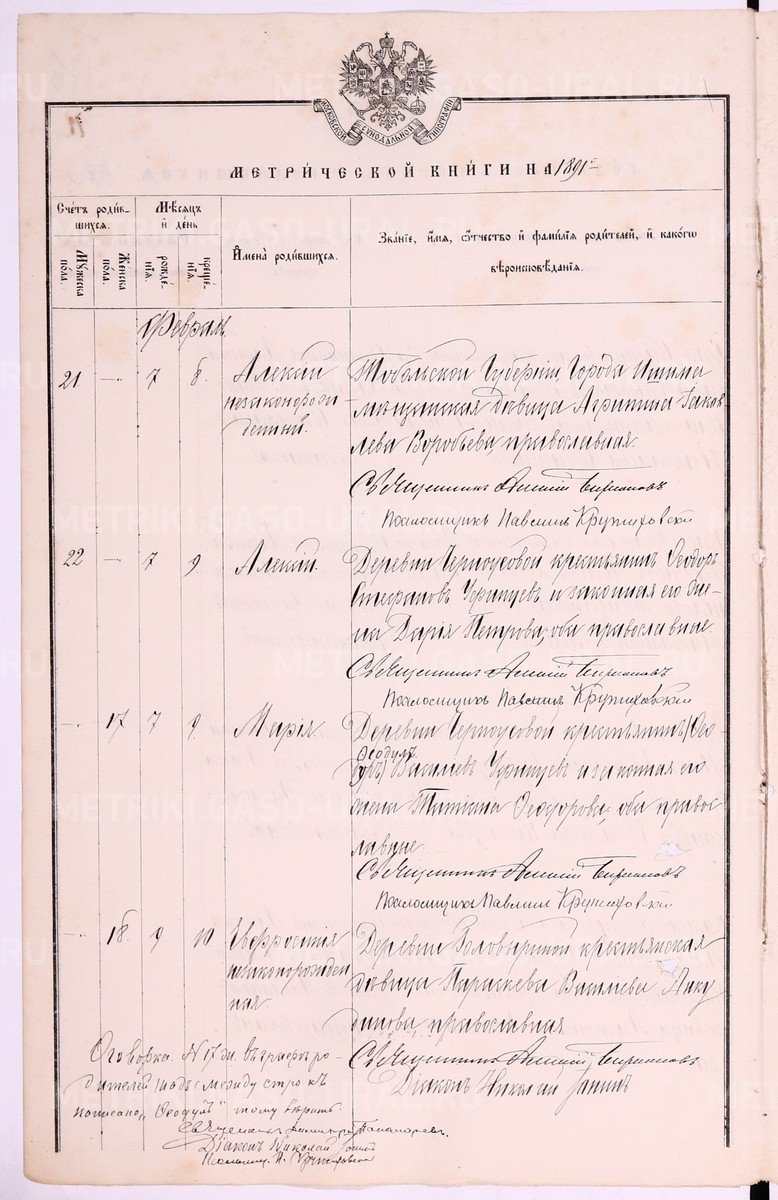 МОСКОВСКОЙ СѴНОДАЛЬНОЙ ТИПОГРАФІИ
МЕТРИ́ЧЕСКОЙ КНИ́ГИ НА 1891 г.
Счетъ роди́вшихся.
Мѣсяцъ и день
Имена роди́вшихся.
Зва́ніе, имя, ѻтчество и фами́лія роди́телей, и како́гѡ вѣроисповѣ́данія.
Мужеска пола.
Женска пола.
рожде́нія.
креще́нія.
Февраль.
21 — 7 8. Алексій незаконорожденный.
Тобольской Губерніи, Города Ишима
мѣщанская дѣвица Агрипина Іаков-
лева Воробьева православная.
Священникъ Алексій
Псаломщикъ Павлинъ Крутиховскій
22 — 7 9 Алексій.
Деревни Черноусовой крестьянинъ Ѳеодоръ
Стефановъ Уфинцевъ и законная его же-
на Дарія Петрова, оба православные.
Священникъ Алексій
Псаломщикъ Павлинъ Крутиховскій
— 17 7 9 Марія.
Деревни Черноусовой крестьянинъ (Ѳео-
Ѳеодулъ
доръ) Васильевъ Уфинцевъ и законная его
жена Татіана Ѳеодорова, оба правос-
лавные.
Священникъ Алексій
Псаломщикъ Павлинъ Крутиховскій
— 18. 9 10 Евфросинія незаконорожденная.
Деревни Головыриной крестьянская
дѣвица Параскева Васильева Нику
динова православная.
Священникъ Алексій
Діаконъ Николай
Оговорка. № 17 жен. въ графѣ ро-
дителей между строкъ
написано „Ѳеодулъ" тому вѣрить.
Священникъ Пономаревъ.
Діаконъ Николай
Псаломщ. П. Крутиховскій